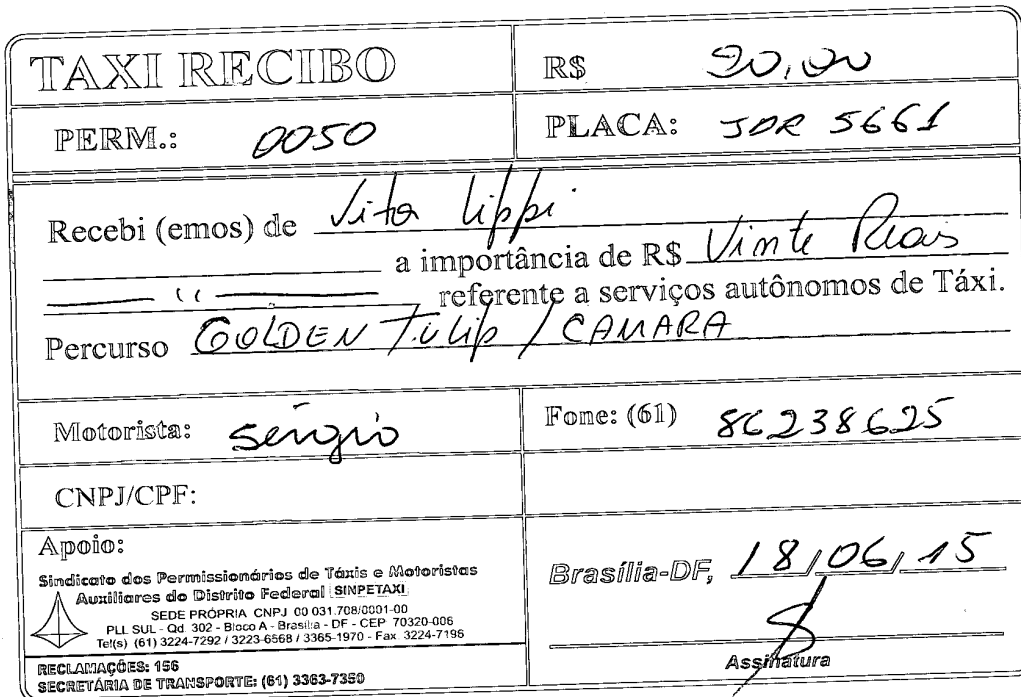 TAXI RECIBO
R$ 20,00
PERM.: 0050
PLACA: JDR 5661
Recebi (emos) de Vitor Lippi
a importância de R$ Vinte Reais
referente a serviços autônomos de Táxi.
Percurso GOLDEN Tulip / CAMARA
Motorista: Sérgio
Fone: (61) 86238625
CNPJ/CPF:
Apoio:
Sindicato dos Permissionários de Táxis e Motoristas
Auxiliares do Distrito Federal SINPETAXI
SEDE PRÓPRIA CNPJ 00 031.708/0001-00
PLL SUL - Qd. 302 - Bloco A - Brasília - DF - CEP 70320-006
Tel(s) (61) 3224-7292 / 3223-6568 / 3365-1970 - Fax. 3224-7196
RECLAMAÇÕES: 156
SECRETÁRIA DE TRANSPORTE: (61) 3363-7350
Brasília-DF, 18/06/15
Assinatura